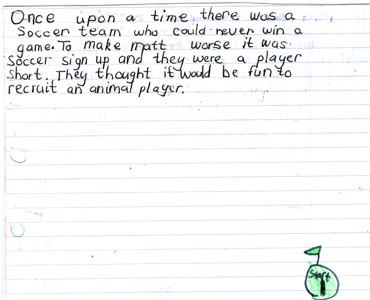 Once upon a time there was a
Soccer team who could never win a
game. To make matt worse it was
Soccer sign up and they were a player
short. They thought it would be fun to
recruit an animal player.
Start